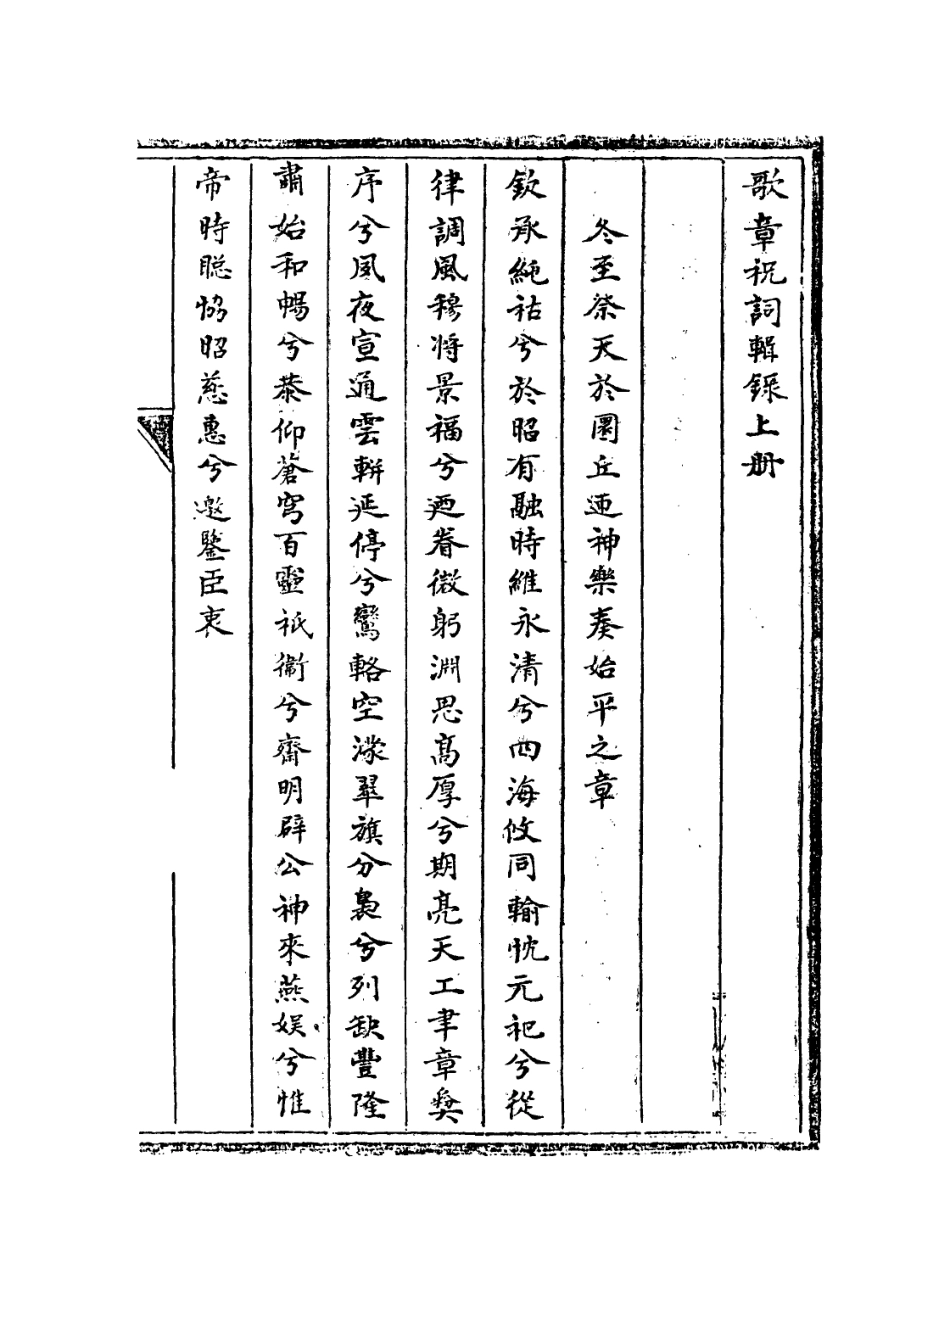 歌章祝詞輯錄上册
冬至祭天於圜丘迎神樂奏始平之章
欽承純祜兮於昭有融時維永清兮四海攸同輸忱元祀兮從
律調風穆將景福兮廼眷微躬淵思高厚兮期亮天工聿章彝
序兮夙夜宣通雲軿延停兮鸞輅空濛翠旗分裊兮列缺豐隆
肅始和暢兮恭仰蒼穹百靈祇衛兮齊明辟公神來燕娭兮惟
帝時聰協昭慈惠兮邀鑒臣衷